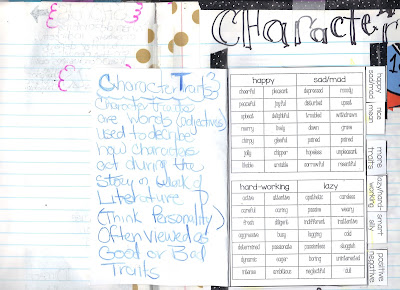 Character
Character Traits
Character Traits
are words (adjectives)
used to describe
how characters
act during the
story or work of
Literature
(Think Personality)
Often viewed as
Good or Bad
Traits
happy sad/mad
cheerful pleasant depressed moody
peaceful joyful disturbed upset
upbeat delightful troubled withdrawn
merry lively down grave
chirpy gleeful pained pained
jolly chipper hopeless unpleasant
likable sorrowful resentful
hard-working lazy
active attentive apathetic careless
careful caring passive weary
fresh diligent indifferent inattentive
aggressive busy lagging cold
determined passionate passionless sluggish
dynamic eager boring uninterested
intense ambitious neglectful dull
happy
sad/mad
nice
mean
more
traits
lazy/hard-
working
smart
silly
positive
negative